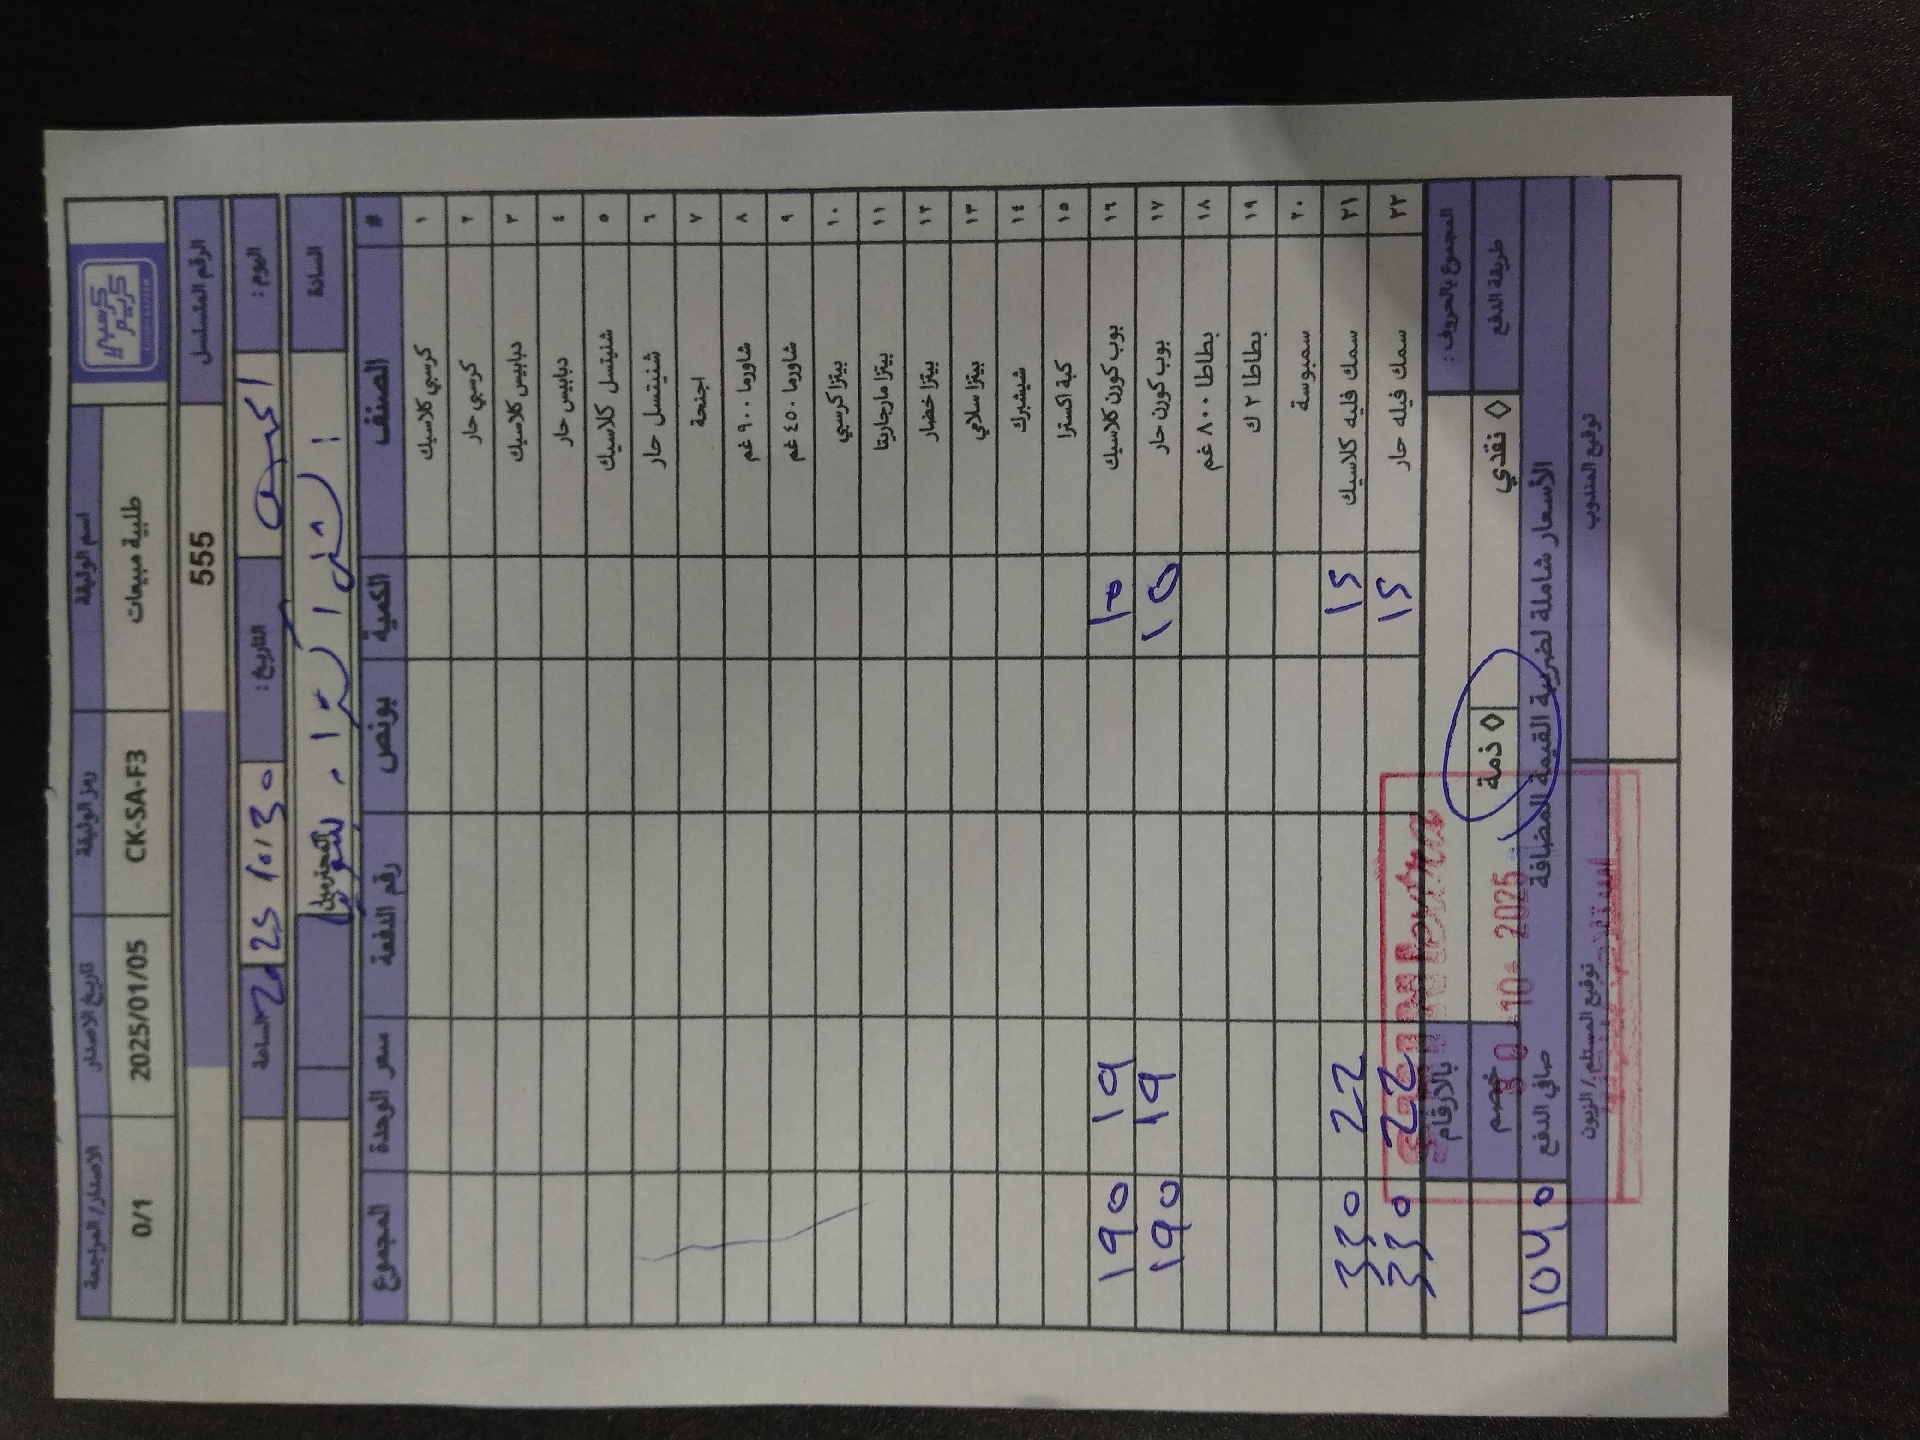 كرسبي كريم
اسم الوثيقة رمز الوثيقة تاريخ الاصدار الاصدار/ المراجعة
طلبية مبيعات CK-SA-F3 2025/01/05 0/1
الرقم المتسلسل 555
اليوم : التاريخ : 30/10/25 الساعة
السادة المحترمين
# الصنف الكمية بونص رقم الدفعة سعر الوحدة المجموع
١ كرسبي كلاسيك
٢ كرسبي حار
٣ دبابيس كلاسيك
٤ دبابيس حار
٥ شنيتسل كلاسيك
٦ شنيتسل حار
٧ اجنحة
٨ شاورما ٩٠٠ غم
٩ شاورما ٤٥٠ غم
١٠ بيتزا كرسبي
١١ بيتزا مارجاريتا
١٢ بيتزا خضار
١٣ بيتزا سلامي
١٤ شيشبرك
١٥ كبة اكسترا
١٦ بوب كورن كلاسيك 10 19 190
١٧ بوب كورن حار 10 19 190
١٨ بطاطا ٨٠٠ غم
١٩ بطاطا ٢ ك
٢٠ سمبوسة
٢١ سمك فليه كلاسيك 15 22 330
٢٢ سمك فيله حار 15 22 330
المجموع بالحروف : بالارقام
طريقة الدفع ◊ نقدي ◊ ذمة خصم
30 -10- 2025
الأسعار شاملة لضريبة القيمة المضافة صافي الدفع 1040
توقيع المندوب توقيع المستلم / الزبون